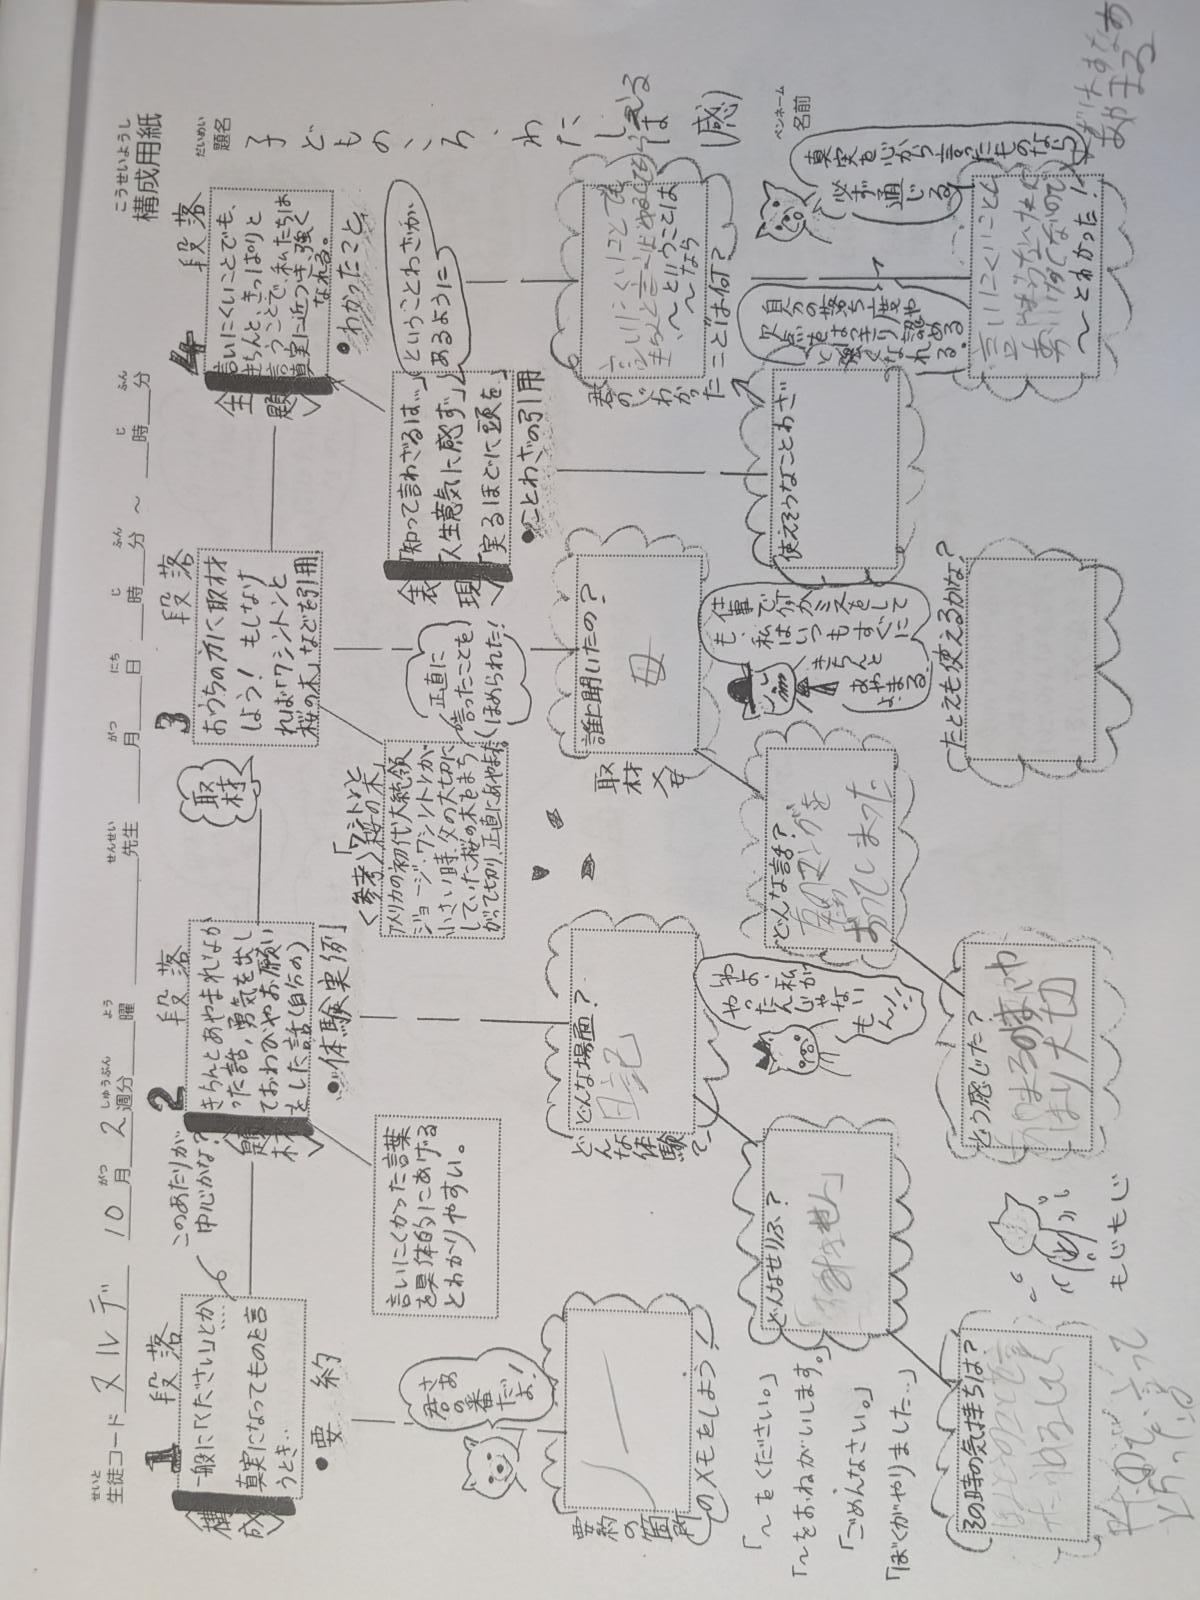 構成用紙
こうせいようし
生徒コード ヌルデ 10月2週分 曜 先生 月 日 時 分 ~ 時 分
題名
だいめい
子どものころ、わたしは
(感)
ペンネーム
名前
1 段落
構成
一般に「ください」とか
真実になってものを言
うとき…
・要約
このあたりが
中心かな?
2 段落
題材
きちんとあやまれなか
った話、勇気を出し
ておわびやお願い
をした話(自分の)
・体験実例
言いにくかった言葉
を具体的にあげる
とわかりやすい。
取材
3 段落
おうちの方に取材
しよう! もしなけ
れば「ワシントンと
桜の木」などを引用
<参考>「ワシントンと
桜の木」
アメリカの初代大統領
ジョージ・ワシントンが
小さい時、父の大切に
していた桜の木をまち
がって切り、正直にあやまった
正直に
言ったことを
ほめられた!
4 段落
主題
言いにくいことでも、
きちんと、きっぱりと
言うことで、私たちは
真実に近づき、強く
なれる。
・わかったこと
表現
「知って言わざるは…」
「人生意気に感ず」
「実るほどに頭を」
ということわざが
あるように
・ことわざの引用
君
さあ
の番
だよ!
要約の箇所
のメモをしよう!
どんな体験で
どんな場面?
日記
わよ、
私が
やったんじゃ
ない
もん!!
取材メモ
誰に聞いたの?
母
仕事で何かミスをして
も、私はいつもすぐに
きちんと
あやまる
よ。
君の「わかった
ことは何?」
言いにくいことでも
~ということは
~なら
自分の落ち度や
欠点をはっきり認め
真実を心から言ったものなら
必ず通じる
「~をください。」
「~をおねがいします。」
「ごめんなさい。」
「ぼくがやりました…」
どんなせりふ?
「すみません」
どんな話?
おってしまった
使えそうなことわざ
その時の気持ちは?
もじもじ
どう感じた?
あやまる事はや
はり大切
たとえも使えるかな?
言いにくいことも
~とわかった!